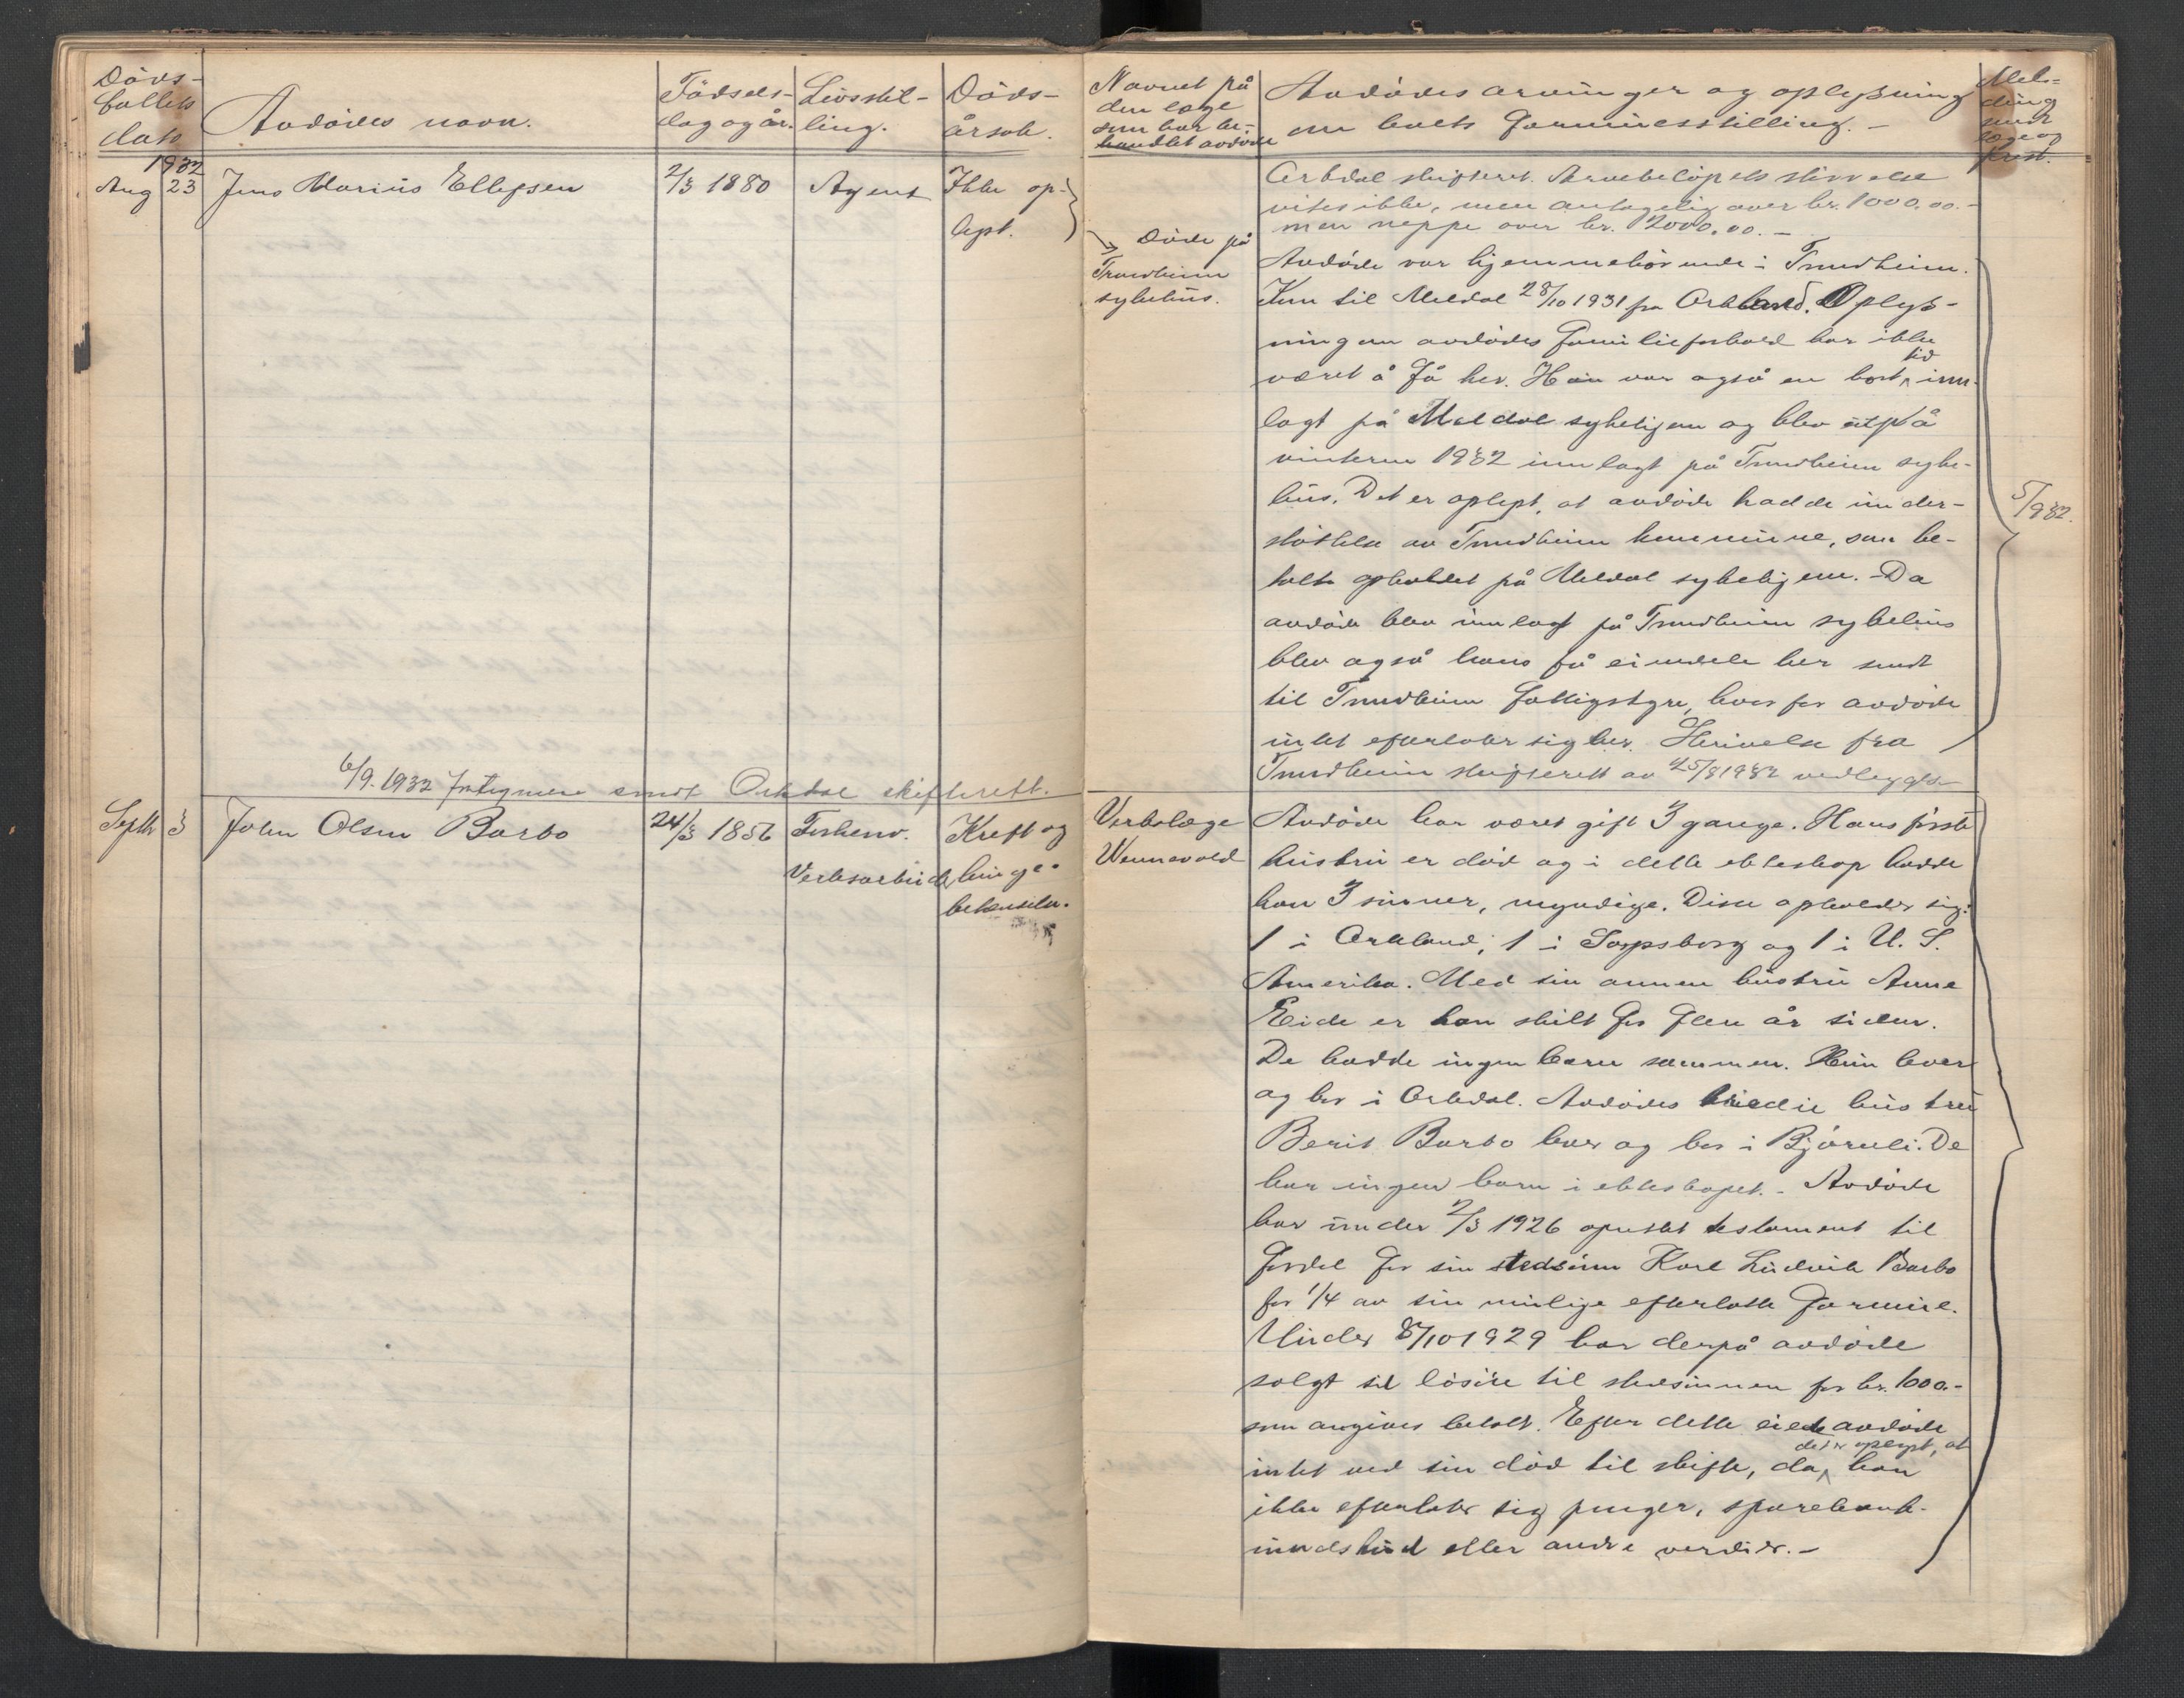 Døds-
fallets
dato
Avdødes navn.
Fødsels-
dag og år.
Livsstil-
ling.
Døds-
årsak.
1932
Aug 23
Jens Marius Ellefsen
2/3 1880
Agent
Ikke op-
lyst.
6/9. 1932 sendt Orkdal skifterett.
Septbr 3
John Olsen Barbo
24/3 1856
Forhenv.
Verksarbeider
Kreft og
lunge-
betendelse.
Navnet på
den læge
som har be-
handlet avdøde
Avdødes arvinger og oplysning
om boets formuesstilling. -
Mel-
ding
sendt
læge og
prest.
Døde på
Trondheim
sykehus.
Orkdal skifteret. Arvebeløpets størrelse
vites ikke, men antagelig over kr. 1000.00. -
men neppe over kr. 2000.00. -
Avdøde var hjemmehørende i Trondheim.
Kom til Meldal 28/10 1931 fra Orkland. Oplys-
ning om avdødes familieforhold har ikke
været å få her. Han var også en kort tid inn-
lagt på Meldal sykehjem og blev utpå
vinteren 1932 innlagt på Trondheim syke-
hus. Det er oplyst, at avdøde hadde under-
støttelse av Trondheim kommune, som be-
talte opholdet på Meldal sykehjem. - Da
avdøde blev innlagt på Trondheim sykehus
blev også hans få eiendele her sendt
til Trondheim fattigstyre, hvorfor avdøde
intet efterlater sig her. Skrivelse fra
Trondheim skifterett av 25/8 1932 vedlegges
5/9 32.
Verkslæge
Wennevold
Avdøde har været gift 3 gange. Hans første
hustru er død og i dette ekteskap hadde
han 3 sønner, myndige. Disse opholder sig:
1 i Orkland, 1 i Sarpsborg og 1 i U. S.
Amerika. Med sin annen hustru Anne
Eide er han skilt for flere år siden.
De hadde ingen barn sammen. Hun lever
og bor i Orkdal. Avdødes tredje hustru
Berit Barbo lever og bor i Bjørnli. De
har ingen barn i ekteskapet. - Avdøde
har under 2/3 1926 oprettet testament til
fordel for sin stedsønn Karl Ludvik Barbo
for 1/4 av sin mulige efterlatte formue.
Under 8/10 1929 har derpå avdøde
solgt sit løsøre til stedsønnen for kr. 1000.-
som angives betalt. Efter dette eiede avdøde
intet ved sin død til skifte, da det er oplyst, at han
ikke efterlater sig penger, sparebank-
innskud eller andre verdier. -